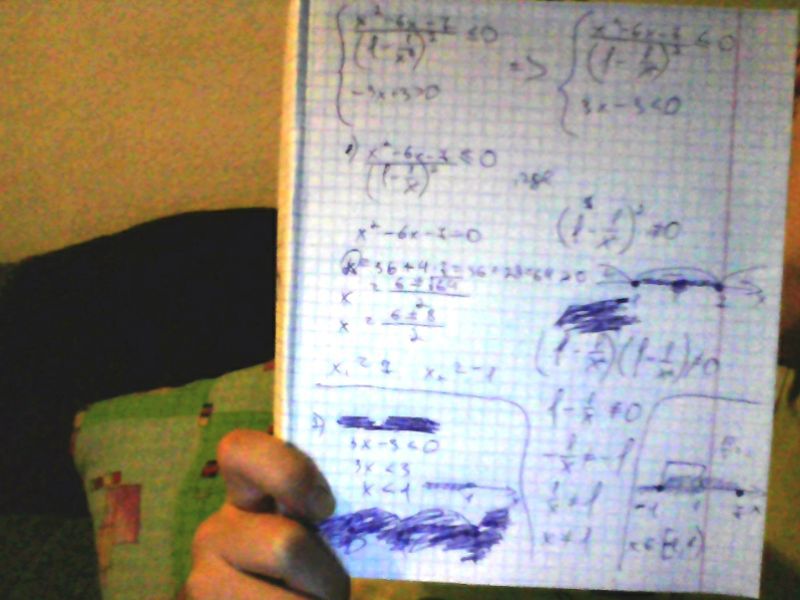 { (x² - 6x - 7) / (1 - 1/x)² ≤ 0 => { (x² - 6x - 7) / (1 - 1/x)² ≤ 0
-3x+3>0 3x-3<0
1) (x² - 6x - 7) / (1 - 1/x)² ≤ 0
x² - 6x - 7 = 0
= 36 + 4·7 = 36 + 28 = 64 > 0
x = (6 ± √64) / 2
x = (6 ± 8) / 2
x₁ = 7 x₂ = -1
(1 - 1/x)² ≠ 0
(1 - 1/x)(1 - 1/x) ≠ 0
1 - 1/x ≠ 0
-1/x ≠ -1
1/x ≠ 1
x ≠ 1
2)
3x-3<0
3x<3
x<1
1
-1 1 7 x
x∈[-1;1)